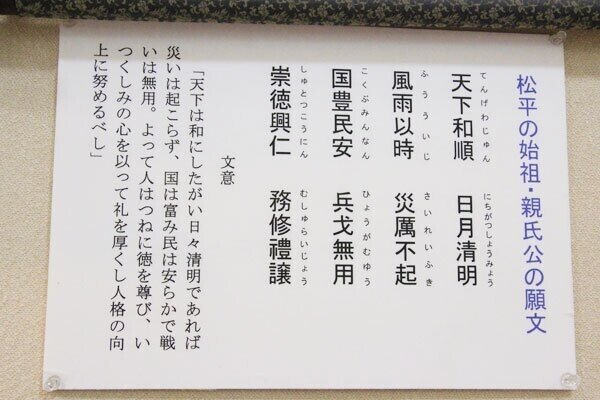 松平の始祖・親氏公の願文
てんげわじゅん にちがつしょうみょう
天下和順 日月清明
ふうういじ さいれいふき
風雨以時 災厲不起
こくぶみんなん ひょうがむゆう
国豊民安 兵戈無用
しゅとつこうにん むしゅらいじょう
崇徳興仁 務修禮譲
文意
「天下は和にしたがい日々清明であれば
災いは起こらず、国は富み民は安らかで戦
いは無用。よって人はつねに徳を尊び、い
つくしみの心を以って礼を厚くし人格の向
上に努めるべし」